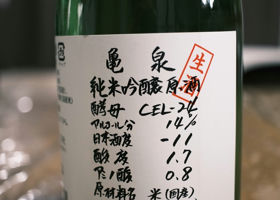 亀泉
生酒
純米吟醸原酒
酵母 CEL-24
アルコール分 14%
日本酒度 -11
酸度 1.7
アミノ酸 0.8
原材料名 米(国産)